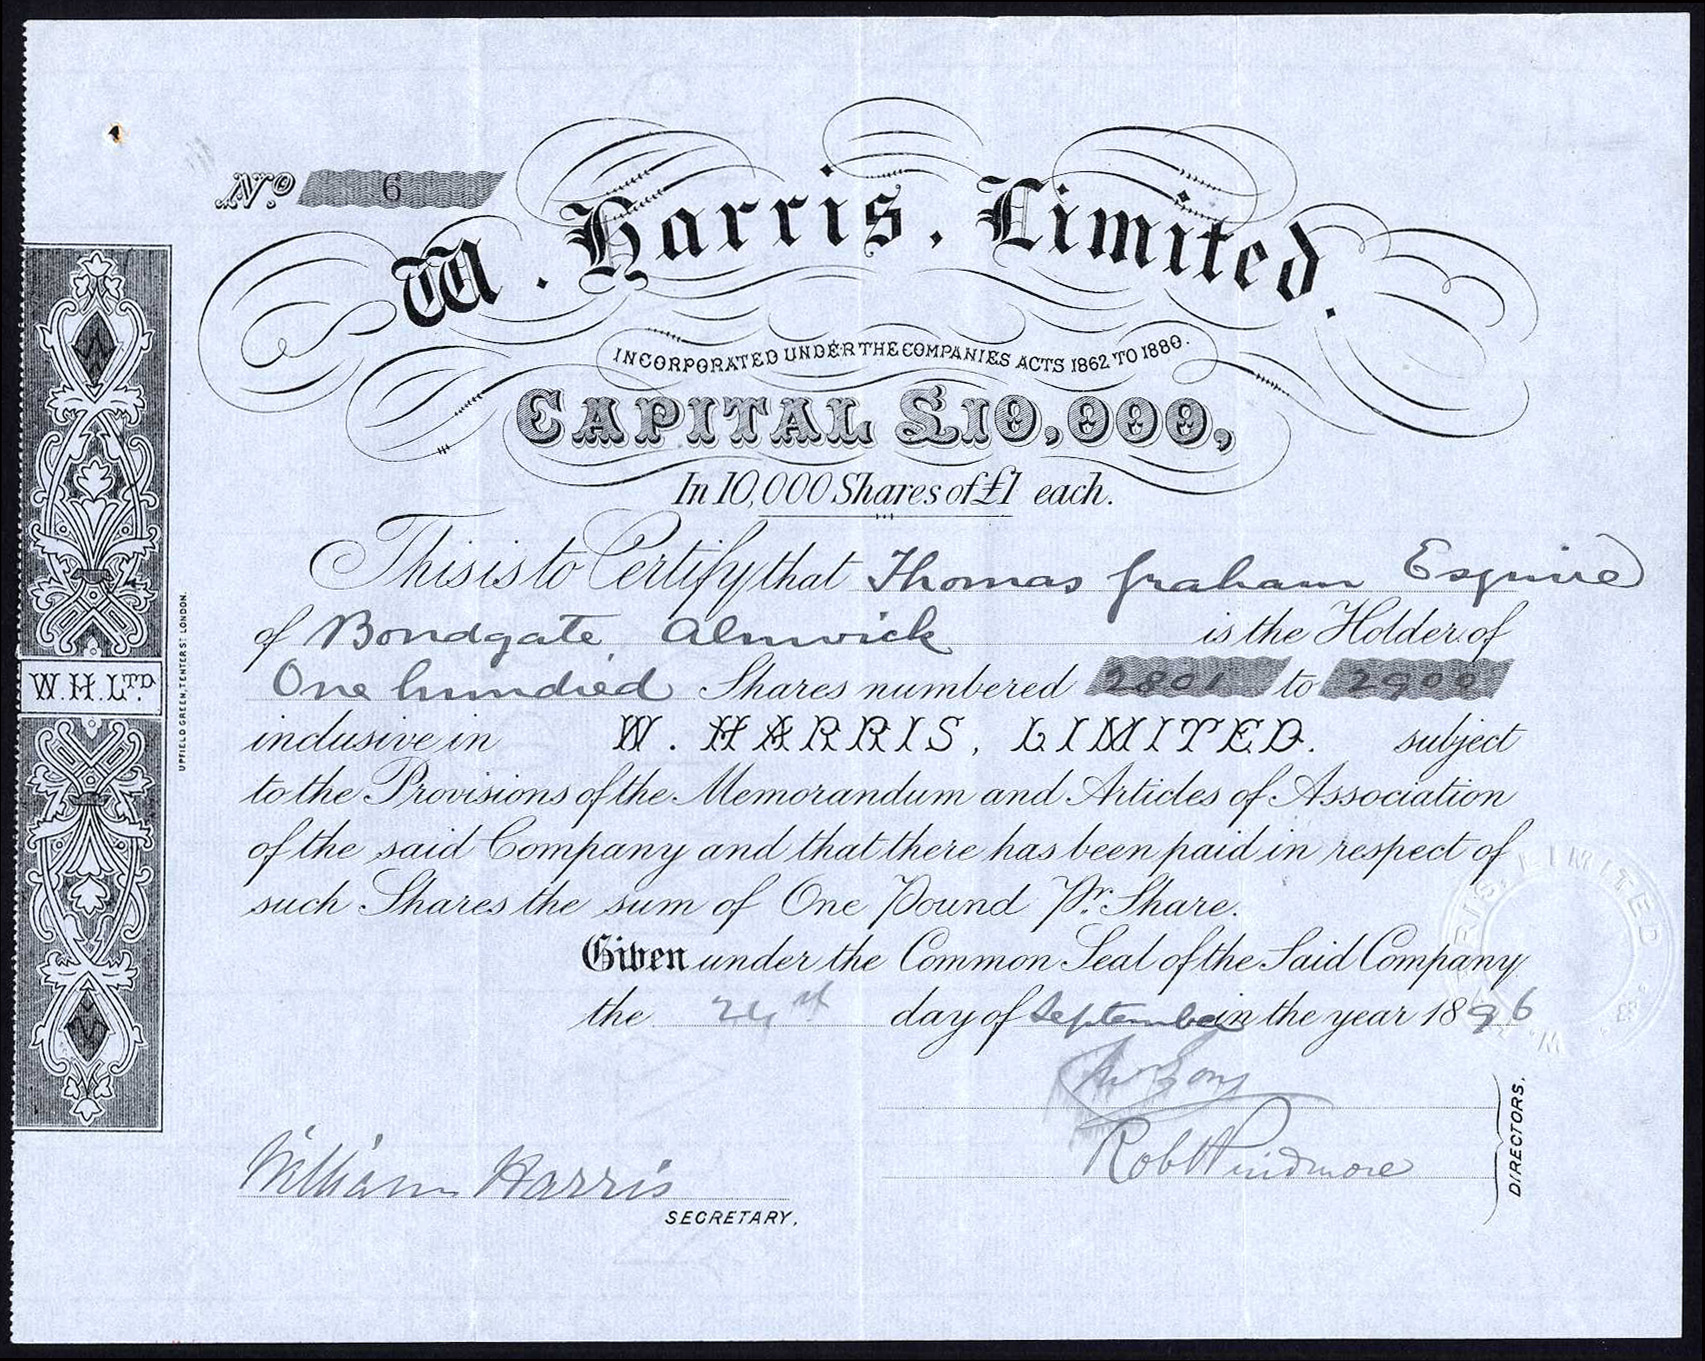 No. 6
W. Harris, Limited.
INCORPORATED UNDER THE COMPANIES ACTS 1862 TO 1880.
CAPITAL £10,000,
In 10,000 Shares of £1 each.
This is to Certify that Thomas Graham Esquire
of Bondgate, Alnwick is the Holder of
One hundred Shares numbered 2801 to 2900
inclusive in W. HARRIS, LIMITED. subject
to the Provisions of the Memorandum and Articles of Association
of the said Company and that there has been paid in respect of
such Shares the sum of One Pound Pr. Share.
Given under the Common Seal of the Said Company
the day of September in the year 1896
Rob Windmore
DIRECTORS.
William Harris
SECRETARY.
W.H.LTD.
UPFIELD GREEN, TENTER ST LONDON.
W. HARRIS, LIMITED